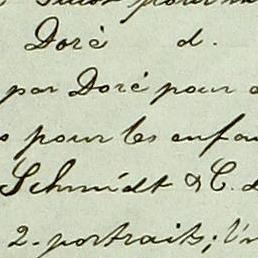 pour
Doré d.
par Doré pour
pour les enfan
Schmidt & C. d
2 portraits; Un